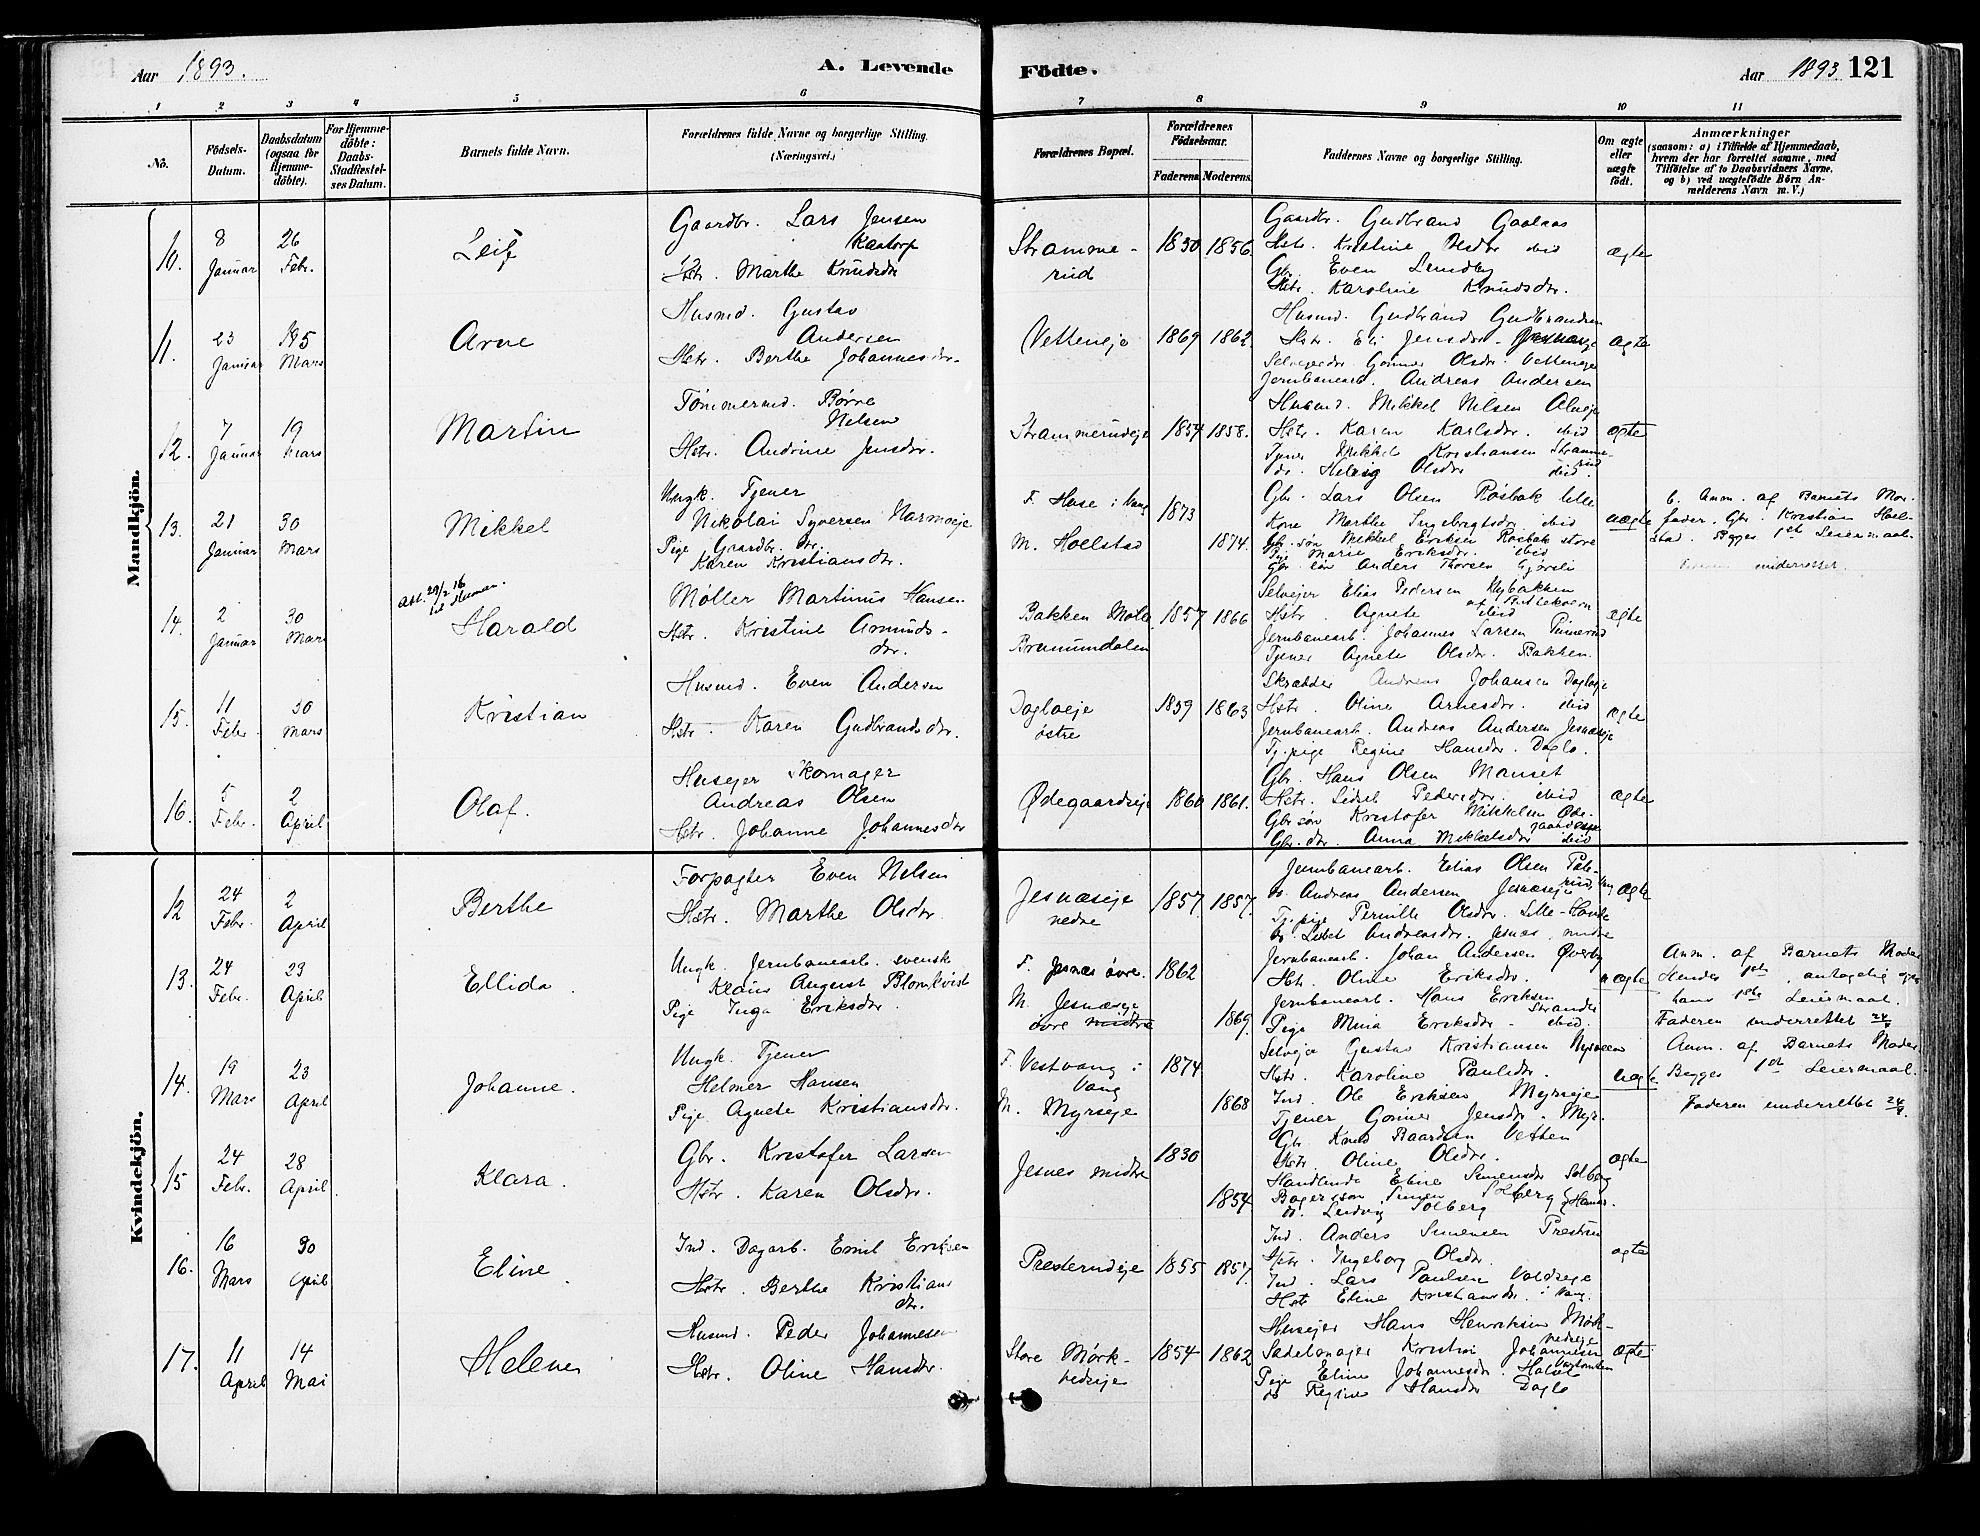 Aar 1893.
A. Levende
Födte.
Aar 1893
121
1 2 3 4 5 6 7 8 9 10 11
No.
Födsels-Datum.
Daabsdatum (ogsaa for Hjemmedöbte).
For Hjemmedöbte: Daabs-Stadfestelses Datum.
Barnets fulde Navn.
Forældrenes fulde Navne og borgerlige Stilling. (Næringsvei.)
Forældrenes Bopæl.
Forældrenes Födselsaar.
Faderens. Moderens.
Faddernes Navne og borgerlige Stilling.
Om ægte eller uægte födt.
Anmærkninger
(saasom: a) i Tilfælde af Hjemmedaab, hvem der har forrettet samme, med Tilföielse af to Daabsvidners Navne, og b) ved uægtefödte Börn Anmelderens Navn m. V.)
Mandkjön.
10. 8 Januar 26 Febr. Leif
Gaardbr. Lars Jensen Kaatorp
Hstr. Marthe Knudsdr
Stramme-rud 1850 1856.
Gaardbr. Gudbrand Gaalaas
Hstr. Kristine Olsdr ibid
Gbr. Even Lundby
Hstr. Karoline Knudsdr.
ægte
11. 23 Januar 5 Mars Arne
Husmd. Gustav Andersen
Hstr. Berthe Johannesdr.
Vetteneje 1869 1862.
Husmd. Gudbrand Gudbrandsen
Hstr. Eli Jensdr.
Selvejerdr Gonner Olsdr. Vetteneje
Jernbanearb. Andreas Andersen
ægte
12. 7 Januar 19 Mars Martin
Tømmermd. Børre Nilsen
Hstr. Andrine Jensdr.
Strammerudeje 1854 1858.
Husmd. Mikkel Nilsen
Hstr. Karen Karlsdr. ibid
Tjener Mikkel Kristiansen Strammerud
do. Helvig Olsdr ibid
ægte
13. 21 Januar 30 Mars Mikkel
Ungk. Tjener
Nikolai Syversen
Pige Gaardbr. dr.
Karen Kristiansdr.
F. Huse i Vang 1873
M. Hoelstad 1874.
Gbr. Lars Olsen Røsbak lille
Kone Marthe Ingebrigtsdr. ibid
Gbr. søn Mikkel Eriksen Røsbak store
Pige Marie Eriksdr. ibid
Gbr søn Anders Thorsen Gjørsli
uægte
b. Anm. af Barnets Mor-
fader, Gbr. Kristian Hoel-
stad. Begges 1ste Leiermaal.
underrettet.
14. 2 Januar 30 Mars
Att. 29/2 16
Harald
Møller Martinus Hansen
Hstr. Kristine Amunds-
dr.
Bakken Mølle
Brumundalen 1857 1866
Selvejer Elias Pedersen Nybakken
Hstr. Agnete ibid
Jernbanearb. Johannes Larsen
Tjener Agnete Olsdr. Bakken.
ægte
15. 11 Febr. 30 Mars Kristian
Husmd. Even Andersen
Hstr. Karen Gudbrandsdr.
Dagloeje østre 1859 1863
Skrædder Andreas Johansen Dagloeje
Hstr. Oline Arnesdr. ibid
Jernbanearb. Andreas Andersen Jesnæseje
Tj.pige Regine Hansdr. Daglo.
ægte
16. 5 Febr. 2 April Olaf.
Husejer Skomager
Andreas Olsen
Hstr. Johanne Johannesdr
Ødegaardseje 1860 1861.
Gbr. Hans Olsen Manset
Hstr. Lidsel Pedersdr. ibid
Gbr søn Kristofer Mikkelsen Ødegaardseje
Gbr. dr. Anna Mikkelsdr ibid
ægte
Kvindekjön.
12 24 Febr. 2 April Berthe
Forpagter Even Nilsen
Hstr. Marthe Olsdr.
Jesnæseje nedre 1857 1857.
Jernbanearb. Elias Olsen
do. Andreas Andersen Jesnæseje
Tj.pige Pernille Olsdr. Lille-
do. Lisbet Andreasdr. Jesnæs midre
ægte
13. 24 Febr. 23 April Ellida
Ungk. Jernbanearb. svenske
Klaus August Blomkvist
Pige Inga Eriksdr.
F. Jesnæs øvre. 1862
M. Jesnæseje øvre midtre 1869.
Jernbanearb. Johan Andersen Øverby
Hstr. Oline Eriksdr.
Jernbanearb. Hans Eriksen Strande
Pige Mina Eriksdr. ibid.
uægte
Anm. af Barnets Moder
Hendes 1ste, antagelig ogs
hans 1ste Leiermaal.
Faderen underrettet 24/4
14. 19 Mars 23 April Johanne.
Ungk. Tjener
Helmer Hansen
Pige Agnete Kristiansdr.
F. Vestvang i Vang 1874
M. Myrseje 1868
Selvejer Gustav Kristiansen
Hstr. Karoline Paulsdr.
Ind. Ole Eriksen Myrseje
Tjener Gonner Jensdr. Myr.
uægte
Anm. af Barnets Moder
Begges 1ste Leiermaal.
Faderen underrettet 24/4.
15 24 Febr. 28 April. Klara.
Gbr. Kristofer Larsen
Hstr. Karen Olsdr.
Jesnes midtre 1830 1854
Gbr Knud Baardsen Vetten
Hstr. Oline Olsdr.
Handlende Eline Simensdr Solberg
Bagerssøn Simen Solberg Hamar.
do. Ludvig Solberg
ægte
16. 16 Mars 30 April Eline
Ind. Dagarb. Emil Eriksen
Hstr. Berthe Kristians
dr.
Presterudeje 1855 1857.
Ind. Anders Simensen Prestrud
Hstr. Ingeborg Olsdr.
Ind. Lars Paulsen Voldseje
Hstr Eline Kristiansdr. i Vang.
ægte
17. 11 April 14 Mai Helene
Husmd. Peder Johannesen
Hstr. Oline Hansdr.
Store Mørk-
vedseje 1854 1862
Husejer Hans Henriksen Mørk-
vedseje
Sadelmager Kristian Johannesen
Pige Eline Johannesdr.
do Regine Hansdr Daglo
ægte